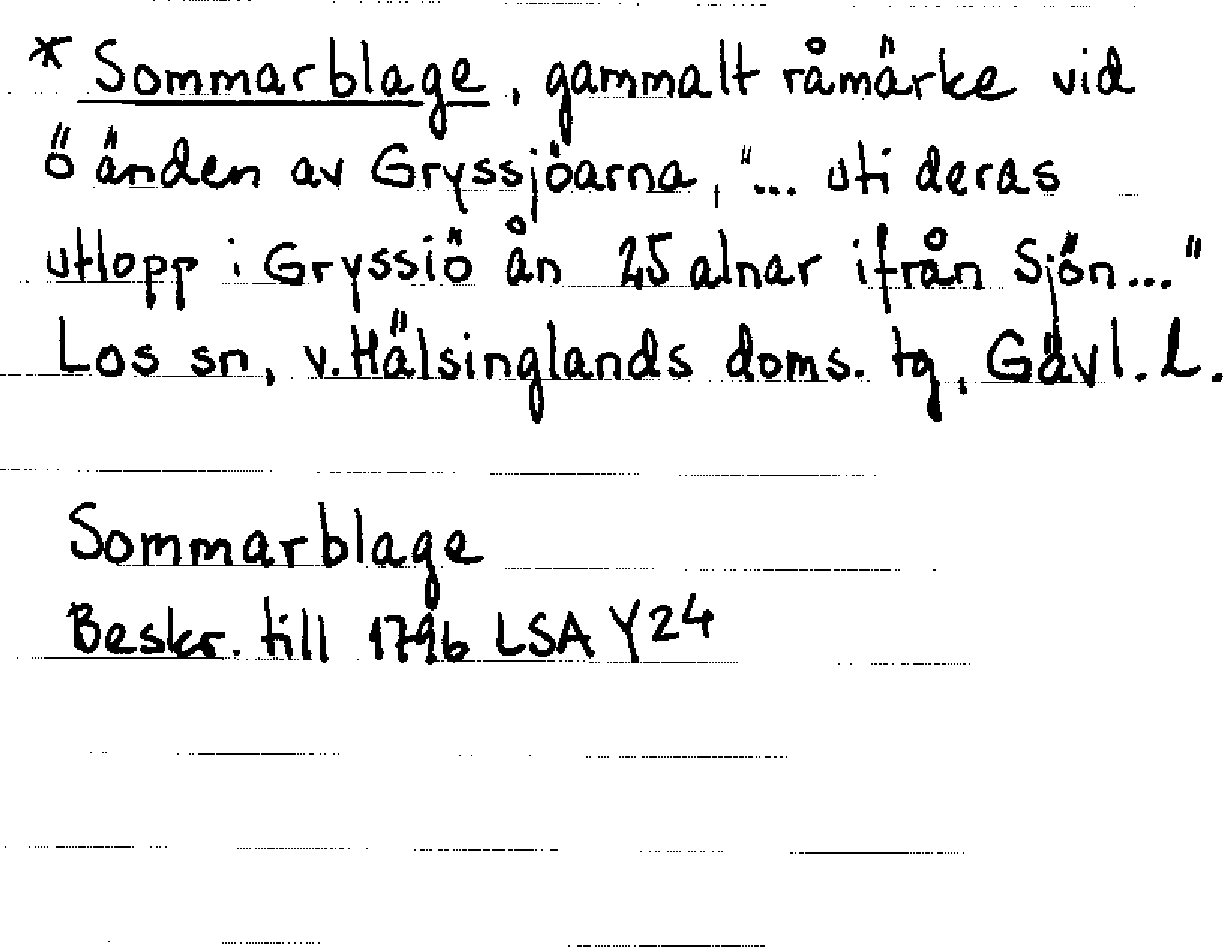 * Sommarblage, gammalt råmärke vid
ö änden av Gryssjöarna, "... uti deras
utlopp i Gryssiö ån 25 alnar ifrån Sjön..."
Los sn, v. Hälsinglands doms. tg, Gävl. L.
Sommarblage
Beskr. till 1796 LSA Y24